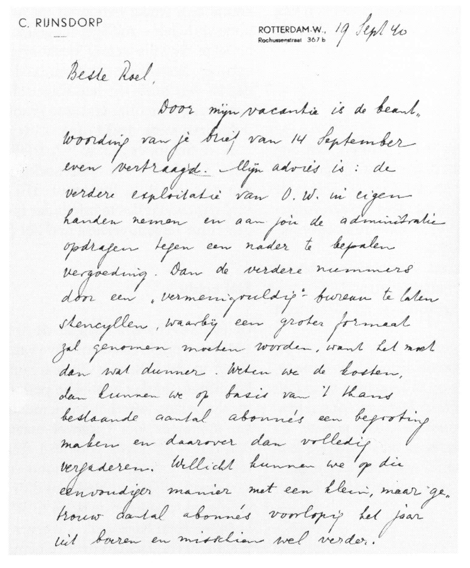 C. RIJNSDORP
ROTTERDAM-W., 19 Sept 40
Rochussenstraat 367 b
Beste Roel,
Door mijn vacantie is de beant-
woording van je brief van 14 September
even vertraagd. Mijn advies is: de
verdere exploitatie van O.W. in eigen
handen nemen en aan jou de administratie
opdragen tegen een nader te bepalen
vergoeding. Dan de verdere nummers
door een "vermenigvuldig"-bureau te laten
stencyllen, waarbij een groter formaat
zal genomen moeten worden, want het moet
dan wat dunner. Weten we de kosten,
dan kunnen we op basis van 't thans
bestaande aantal abonné's een begrooting
maken en daarover dan volledig
vergaderen. Wellicht kunnen we op die
eenvoudiger manier met een klein, maar ge-
trouw aantal abonné's voorlopig het jaar
uit boeren en misschien wel verder.